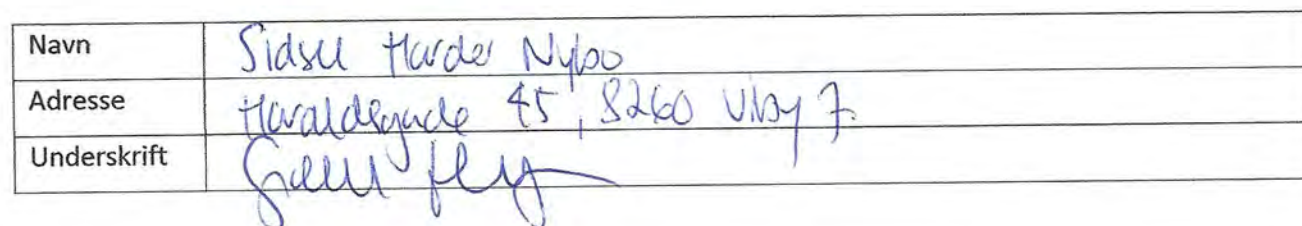 Navn Sidsel Harder Nybo
Adresse Haraldsgade 45, 8260 Viby J.
Underskrift